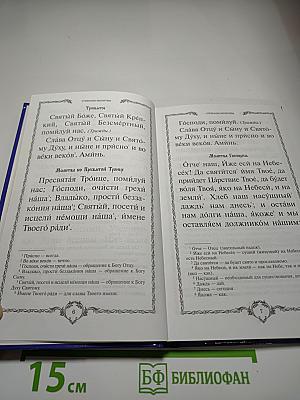 Трисвятое
Святы́й Бо́же, Святы́й Кре́п-
кий, Святы́й Безсме́ртный,
поми́луй нас. (Трижды.)
Сла́ва Отцу́ и Сы́ну и Свято́-
му Ду́ху, и ны́не и при́сно и во
ве́ки веко́в. Ами́нь.
Молитва ко Пресвятой Троице
Пресвята́я Тро́ице, поми́луй
нас; Го́споди, очи́сти грехи́
на́ша; Влады́ко, прости́ безза-
ко́ния на́ша; Святы́й, посети́ и
исцели́ не́мощи на́ша, и́мене
Твоего́ ра́ди.
6
Го́споди, поми́луй. (Трижды.)
Сла́ва Отцу́ и Сы́ну и Свято́-
му Ду́ху, и ны́не и при́сно и во
ве́ки веко́в. Ами́нь.
Молитва Господня
О́тче наш, И́же еси́ на Небе-
се́х! Да святи́тся и́мя Твое́, да
прии́дет Ца́рствие Твое́, да бу́-
дет во́ля Твоя́, я́ко на Небеси́, и
на земли́. Хлеб наш насу́щный
даждь нам днесь, и оста́ви
нам до́лги на́ша, я́коже и мы
оставля́ем должнико́м на́шим;
7
15 см
БФ БИБЛИОФАН